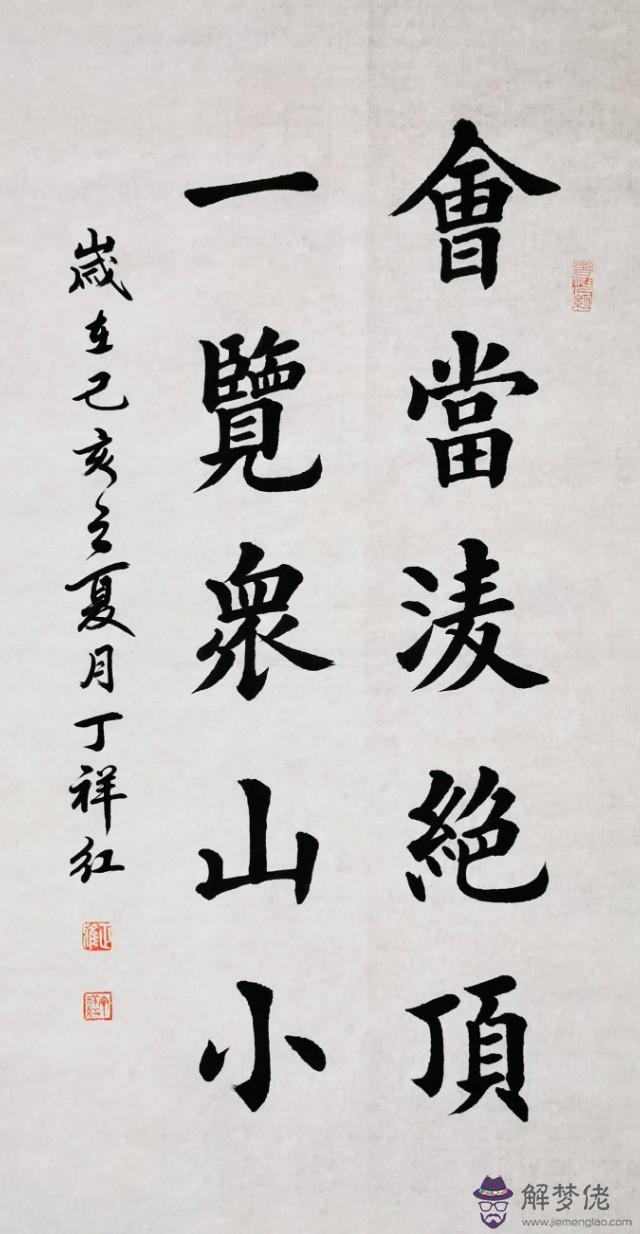 會當淩絕頂
一覽衆山小
歲在己亥之夏月丁祥红
解梦佬
www.jiemenglao.com